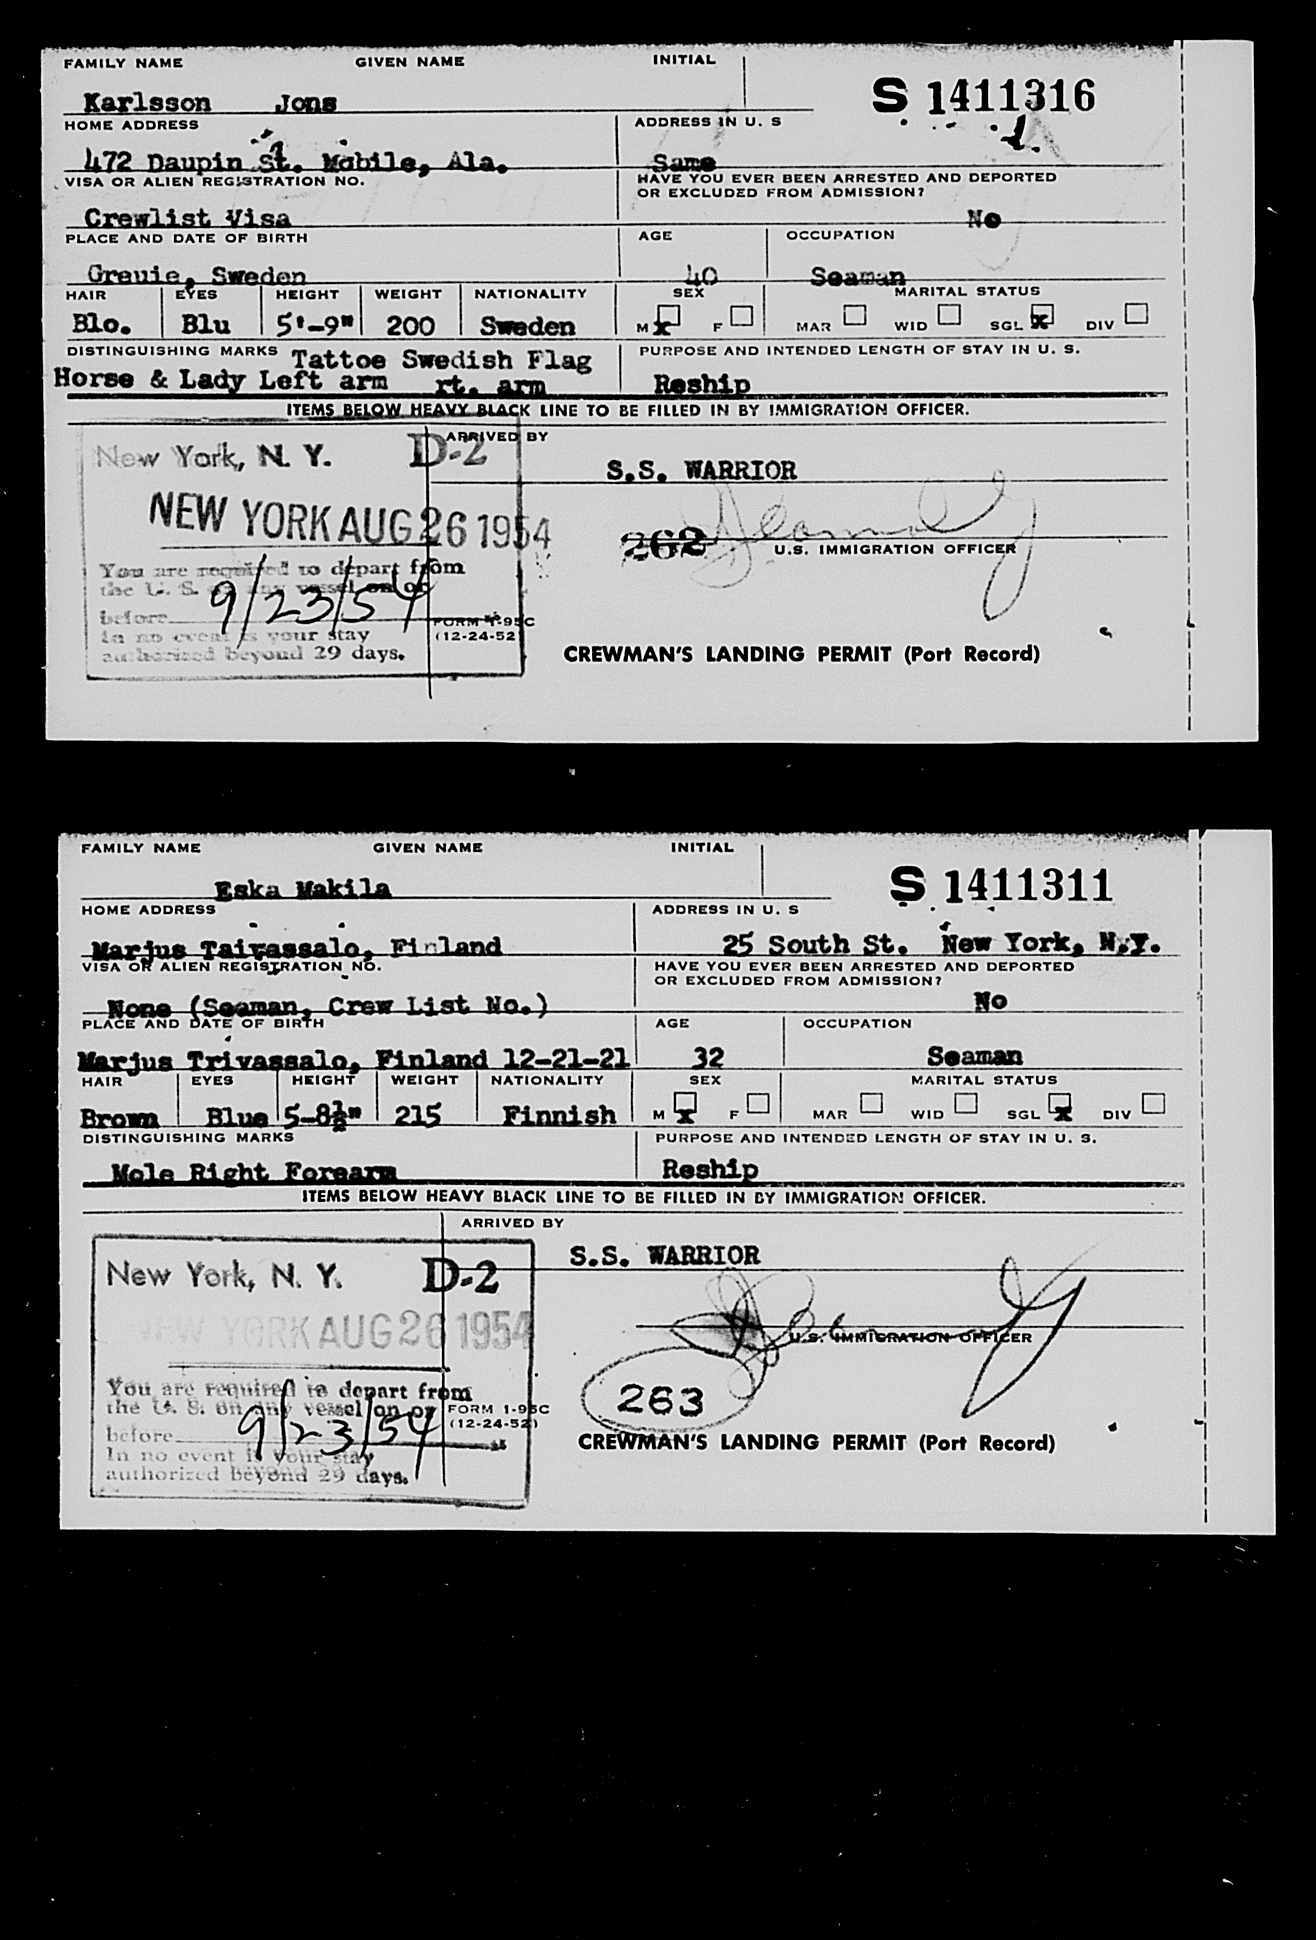 FAMILY NAME GIVEN NAME INITIAL
S 1411316
Karlsson Jons
HOME ADDRESS ADDRESS IN U. S
472 Daupin St. Mobile, Ala. Same
VISA OR ALIEN REGISTRATION NO. HAVE YOU EVER BEEN ARRESTED AND DEPORTED
OR EXCLUDED FROM ADMISSION?
Crewlist Visa No
PLACE AND DATE OF BIRTH AGE OCCUPATION
Greuie, Sweden 40 Seaman
HAIR EYES HEIGHT WEIGHT NATIONALITY SEX MARITAL STATUS
Blo. Blu 5'-9" 200 Sweden M X F MAR WID SGL X DIV
DISTINGUISHING MARKS Tattoe Swedish Flag PURPOSE AND INTENDED LENGTH OF STAY IN U. S.
Horse & Lady Left arm rt. arm Reship
ITEMS BELOW HEAVY BLACK LINE TO BE FILLED IN BY IMMIGRATION OFFICER.
New York, N. Y. D-2 ARRIVED BY
S.S. WARRIOR
NEW YORK AUG 26 1954
262 U.S. IMMIGRATION OFFICER
You are required to depart from
the U. S. on any vessel on or
before 9/23/54 FORM I-95C
In no event is your stay (12-24-52)
authorized beyond 29 days. CREWMAN'S LANDING PERMIT (Port Record)
FAMILY NAME GIVEN NAME INITIAL
S 1411311
Eska Makila
HOME ADDRESS ADDRESS IN U. S
Marjus Taivassalo, Finland 25 South St. New York, N.Y.
VISA OR ALIEN REGISTRATION NO. HAVE YOU EVER BEEN ARRESTED AND DEPORTED
OR EXCLUDED FROM ADMISSION?
None (Seaman, Crew List No.) No
PLACE AND DATE OF BIRTH AGE OCCUPATION
Marjus Trivassalo, Finland 12-21-21 32 Seaman
HAIR EYES HEIGHT WEIGHT NATIONALITY SEX MARITAL STATUS
Brown Blue 5-8½" 215 Finnish M X F MAR WID SGL X DIV
DISTINGUISHING MARKS PURPOSE AND INTENDED LENGTH OF STAY IN U. S.
Mole Right Forearm Reship
ITEMS BELOW HEAVY BLACK LINE TO BE FILLED IN BY IMMIGRATION OFFICER.
ARRIVED BY
New York, N. Y. D-2 S.S. WARRIOR
NEW YORK AUG 26 1954
U.S. IMMIGRATION OFFICER
You are required to depart from
the U. S. on any vessel on or FORM I-95C
263
before 9/23/54 (12-24-52)
In no event is your stay
authorized beyond 29 days. CREWMAN'S LANDING PERMIT (Port Record)